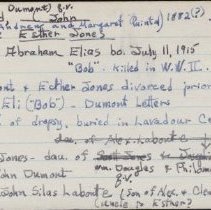 Dumont) q.v.
(John
(Andrew and Margaret Paints) 1882(?)
Esther Jones
Abraham Elias bo. July 11, 1915
"Bob". Killed in W.W. II.
ont & Esther Jones divorced prior
Eli ("Bob") - Dumont Letters
of dropsy, buried in Lavadour C
dau. of Alex. Labonte &
Jones - dau. of
m. Douglas & Phil
John Dumont q.v.
John Silas Labonte (son of Alex. & Cle
(uncle to Esther?